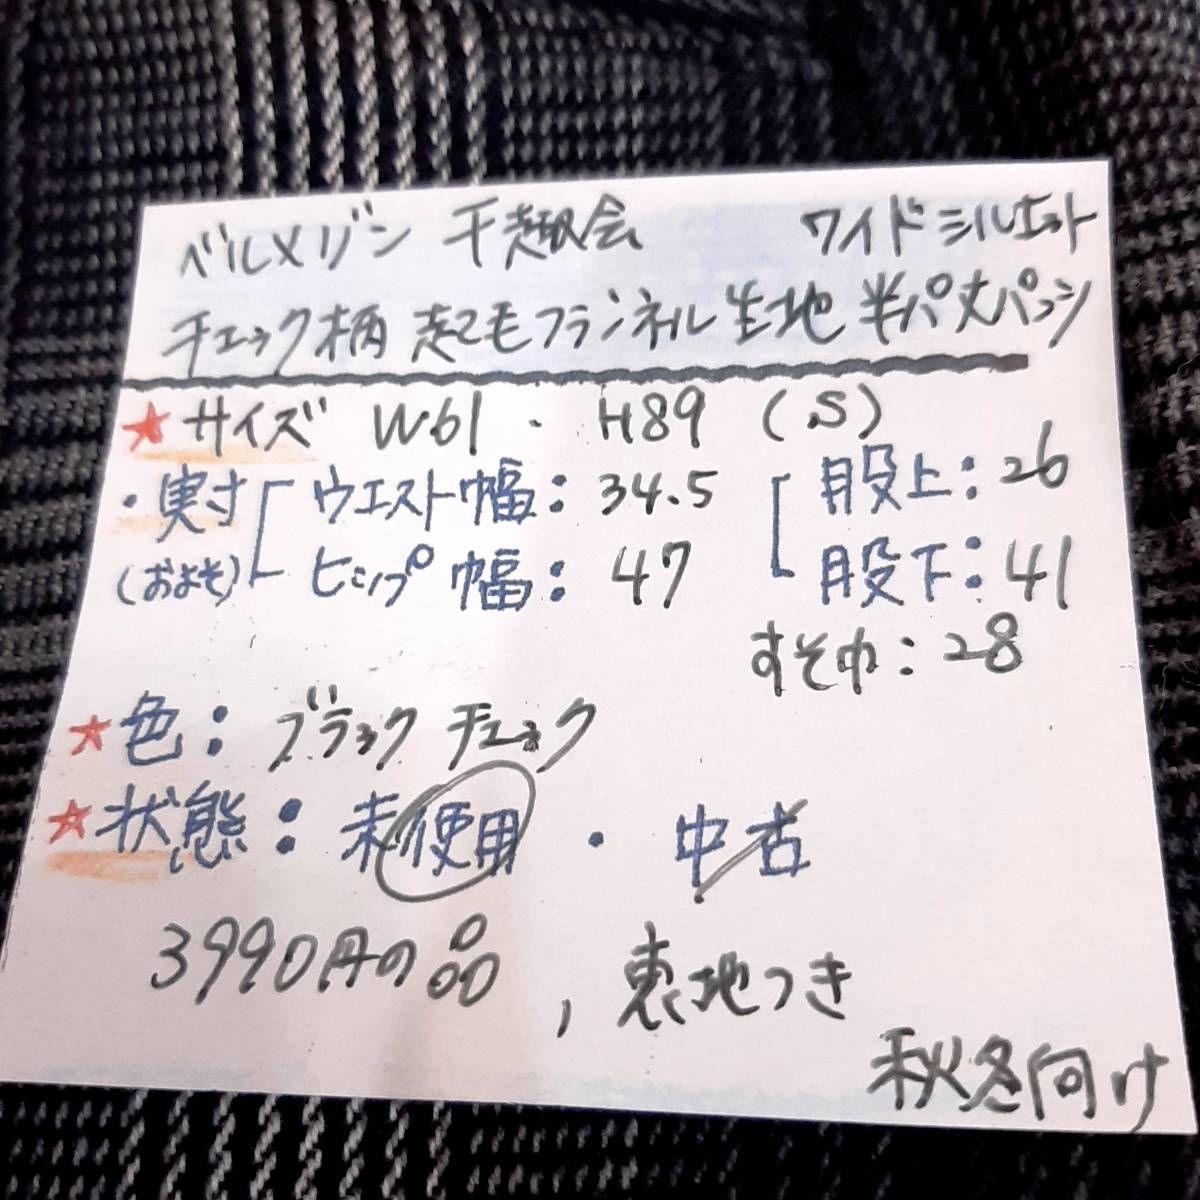 ベルメゾン 千趣会 ワイドシルエット
チェック柄 起もフランネル生地 半パ丈パンツ
★サイズ W61・H89 (S)
・実寸 ウエスト幅:34.5 股上:26
(およそ) ヒップ幅:47 股下:41
すそ巾:28
★色:ブラックチェック
★状態:未使用・中古
3990円の品,裏地つき
秋冬向け